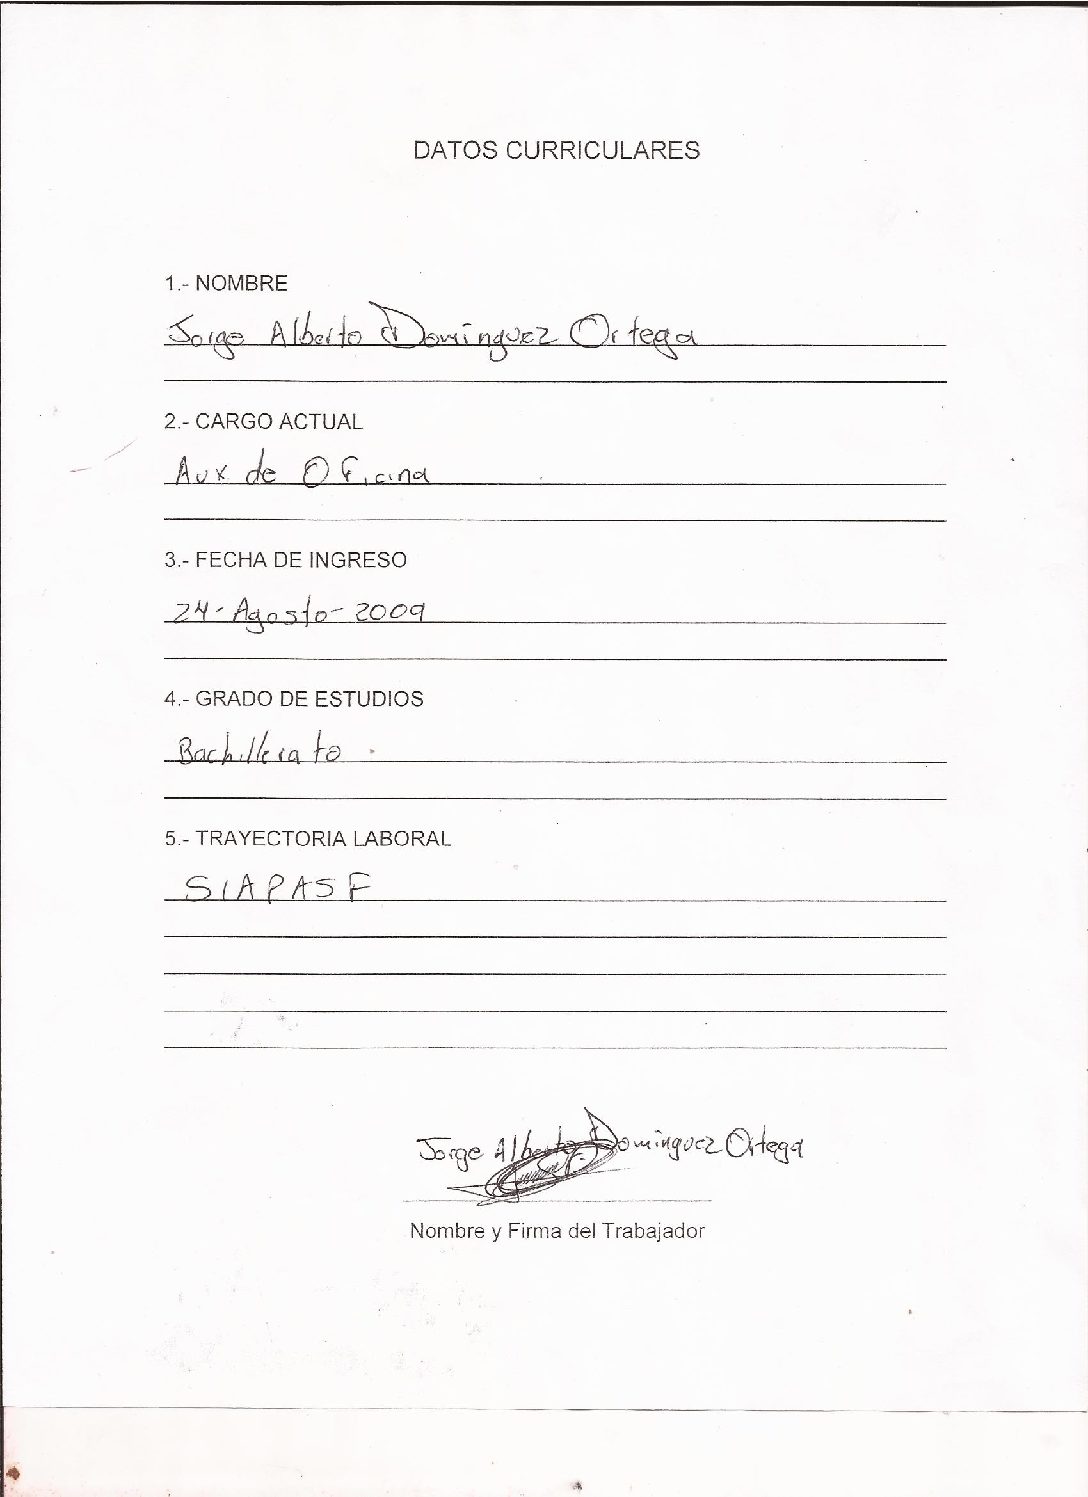 DATOS CURRICULARES
1.- NOMBRE
Jorge Alberto Dominguez Ortega
2.- CARGO ACTUAL
Aux de Oficina
3.- FECHA DE INGRESO
24-Agosto-2009
4.- GRADO DE ESTUDIOS
Bachillerato
5.- TRAYECTORIA LABORAL
SIAPASF
Jorge Alberto Dominguez Ortega
Nombre y Firma del Trabajador